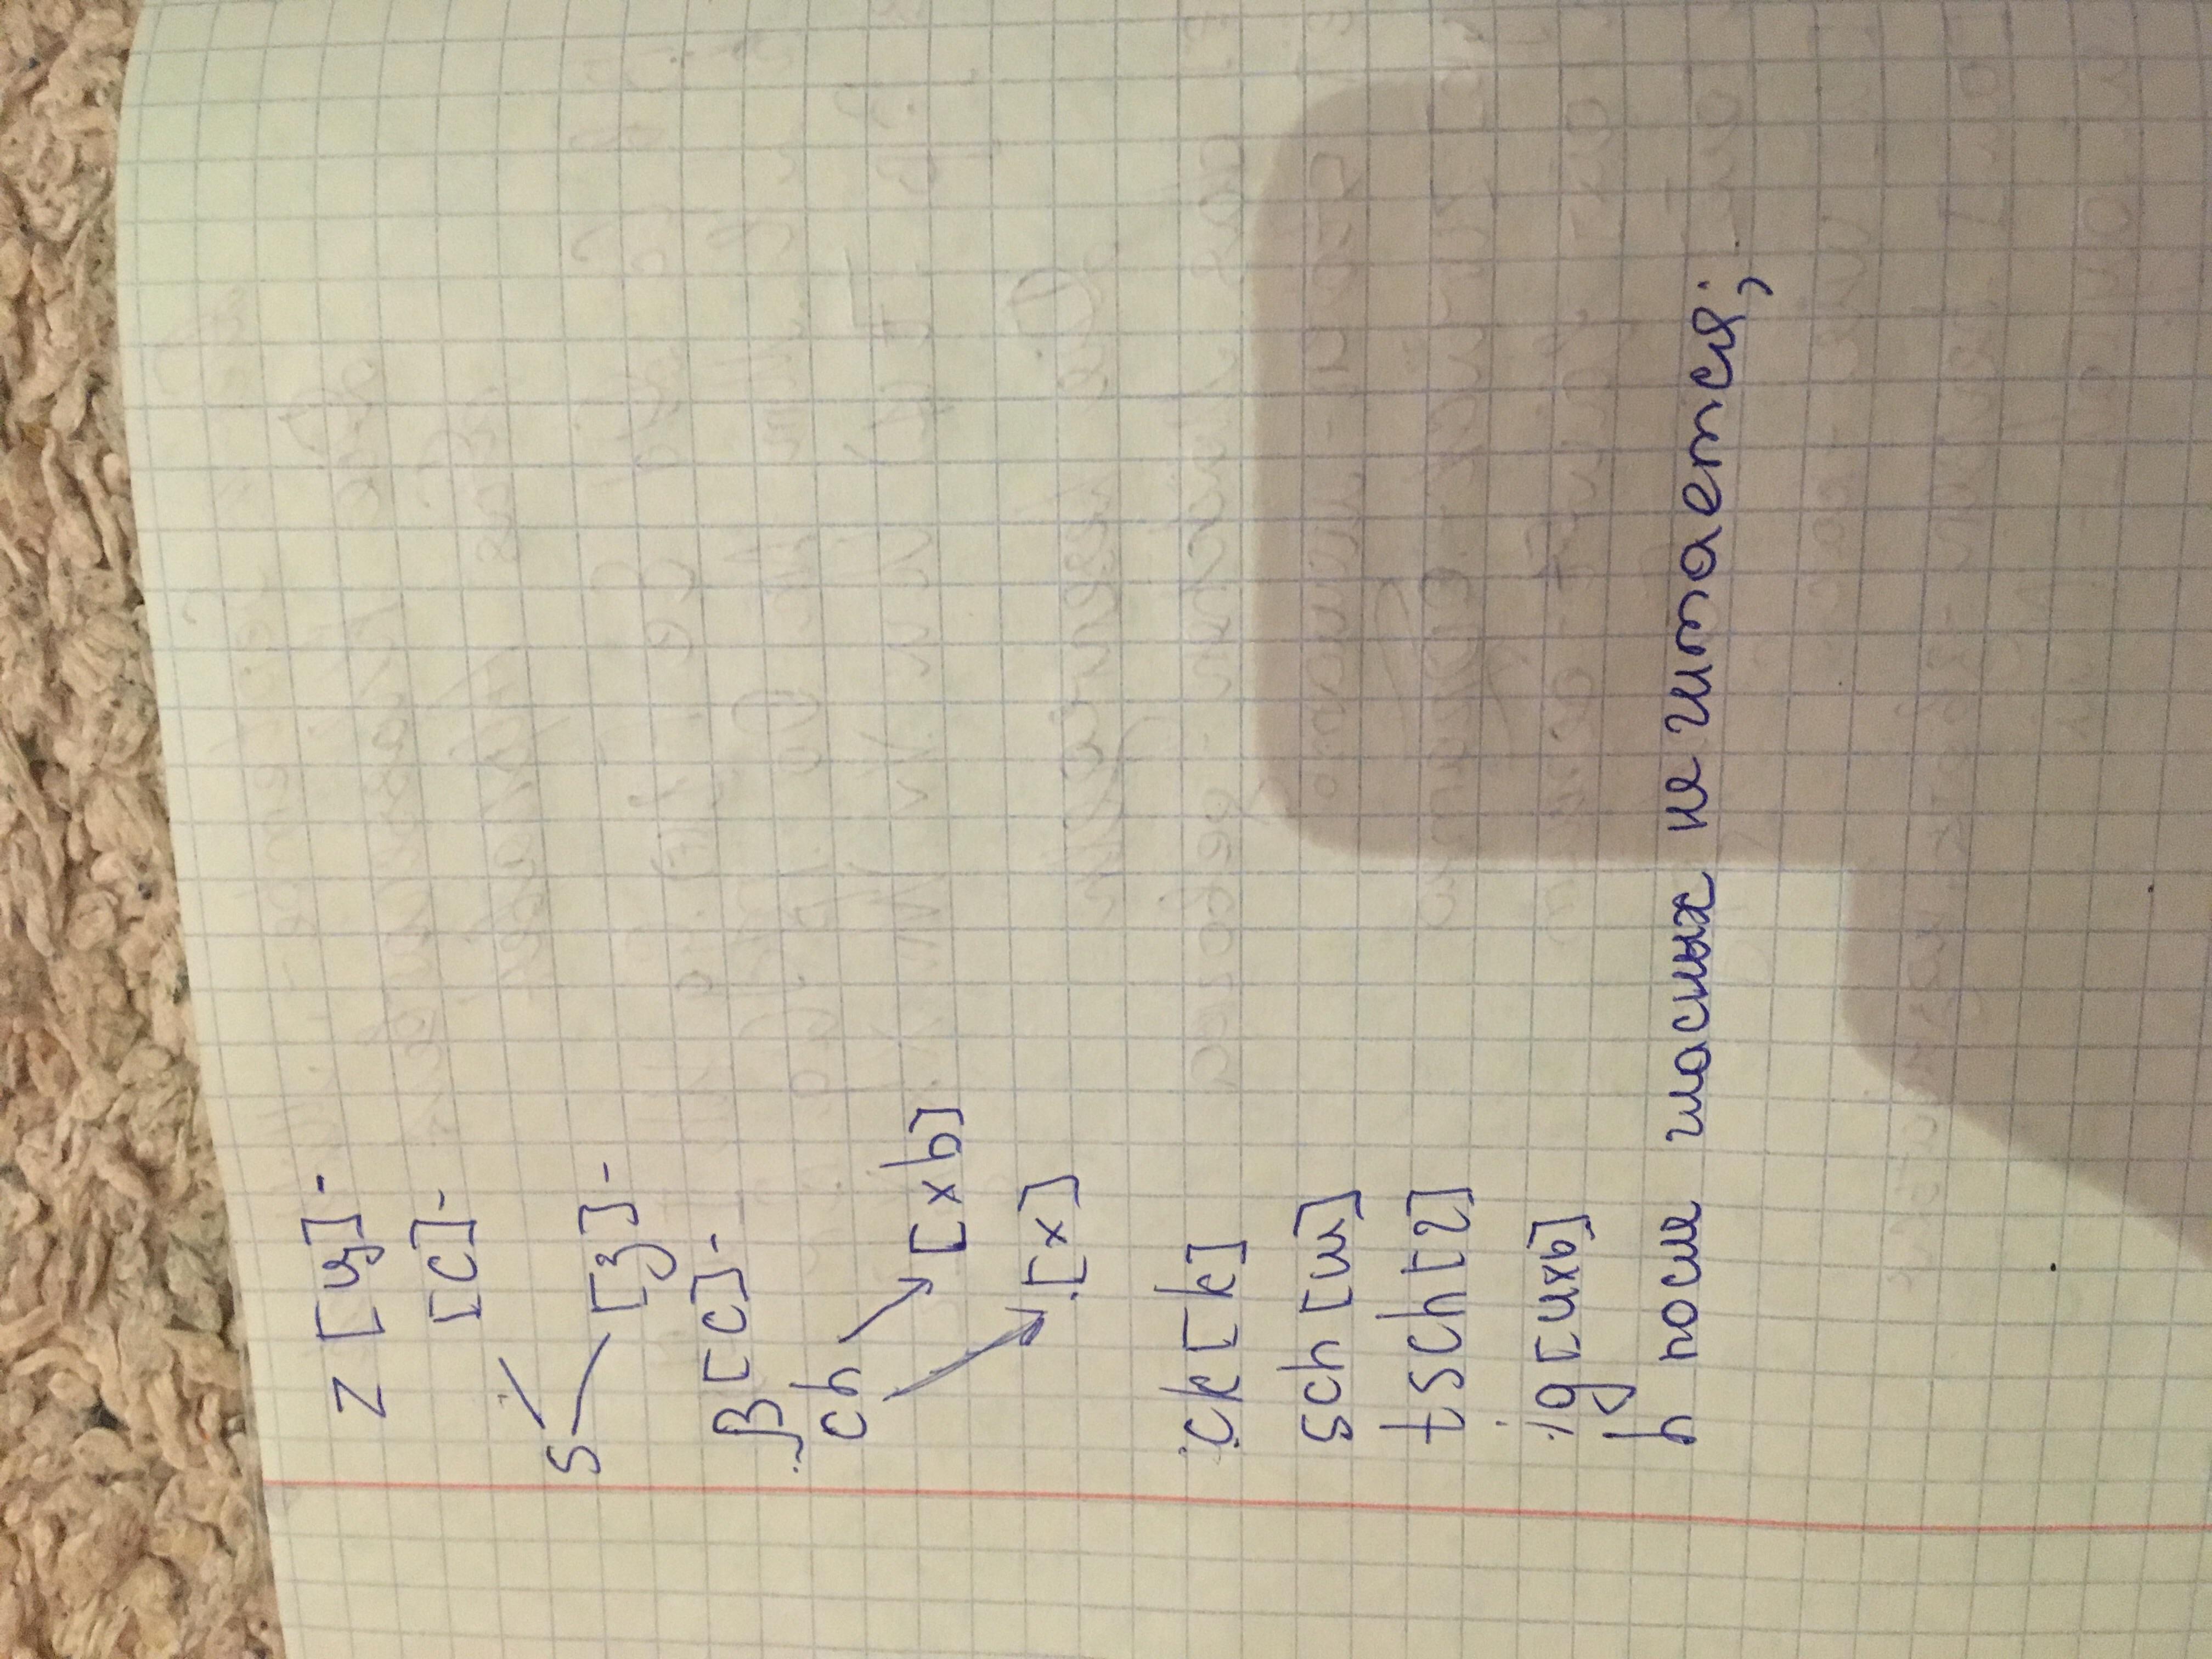 z [ц]-
[с]-
s
[з]-
ß [с]-
ch [хь]
[х]
ck [k]
sch [ш]
tsch [ч]
ig [ихь]
h после гласных не читается;